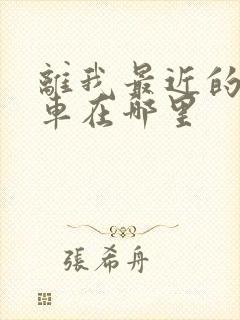 離我最近的
車在哪里
張希舟